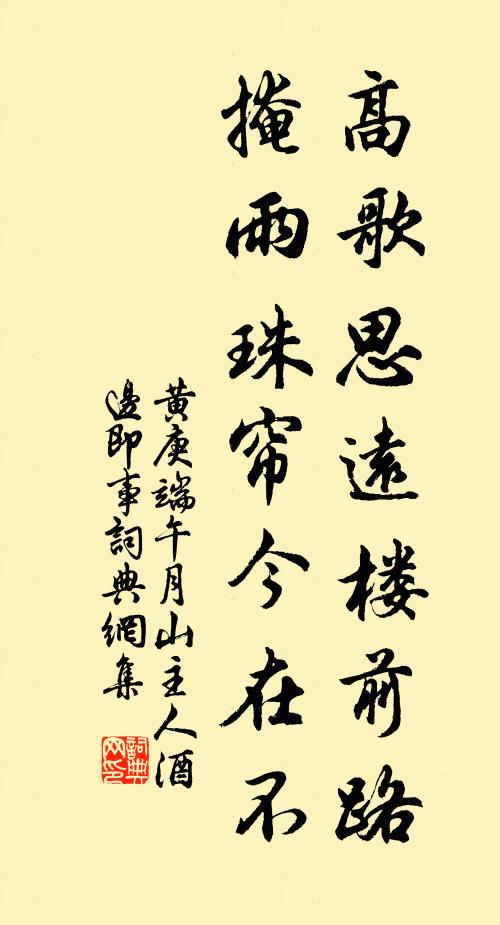 高歌思遠楼前路
掩雨珠帘今在不
黄庚端午月山主人酒
邊即事詞典網集
詞典网印